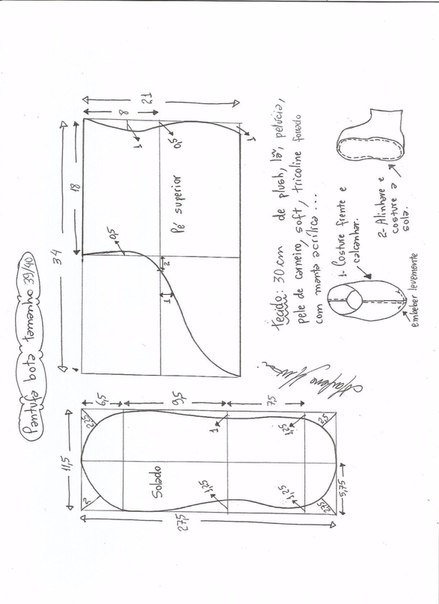 Pantufa bota tamanho 39/40
34
18
21
8
1
0,5
1
0,5
2
1
Pé superior
tecido: 30 cm de plush, lã, pelúcia,
pele de carneiro, soft, tricoline forrado
com manta acrílica...
1- Costure frente e
calcanhar.
2- Alinhave e
costure a
sola.
embeber levemente
27,5
11,5
6,5
9,5
7,5
5,75
2,5
2
1
1,25
1,25
1,25
2,5
2,25
Solado